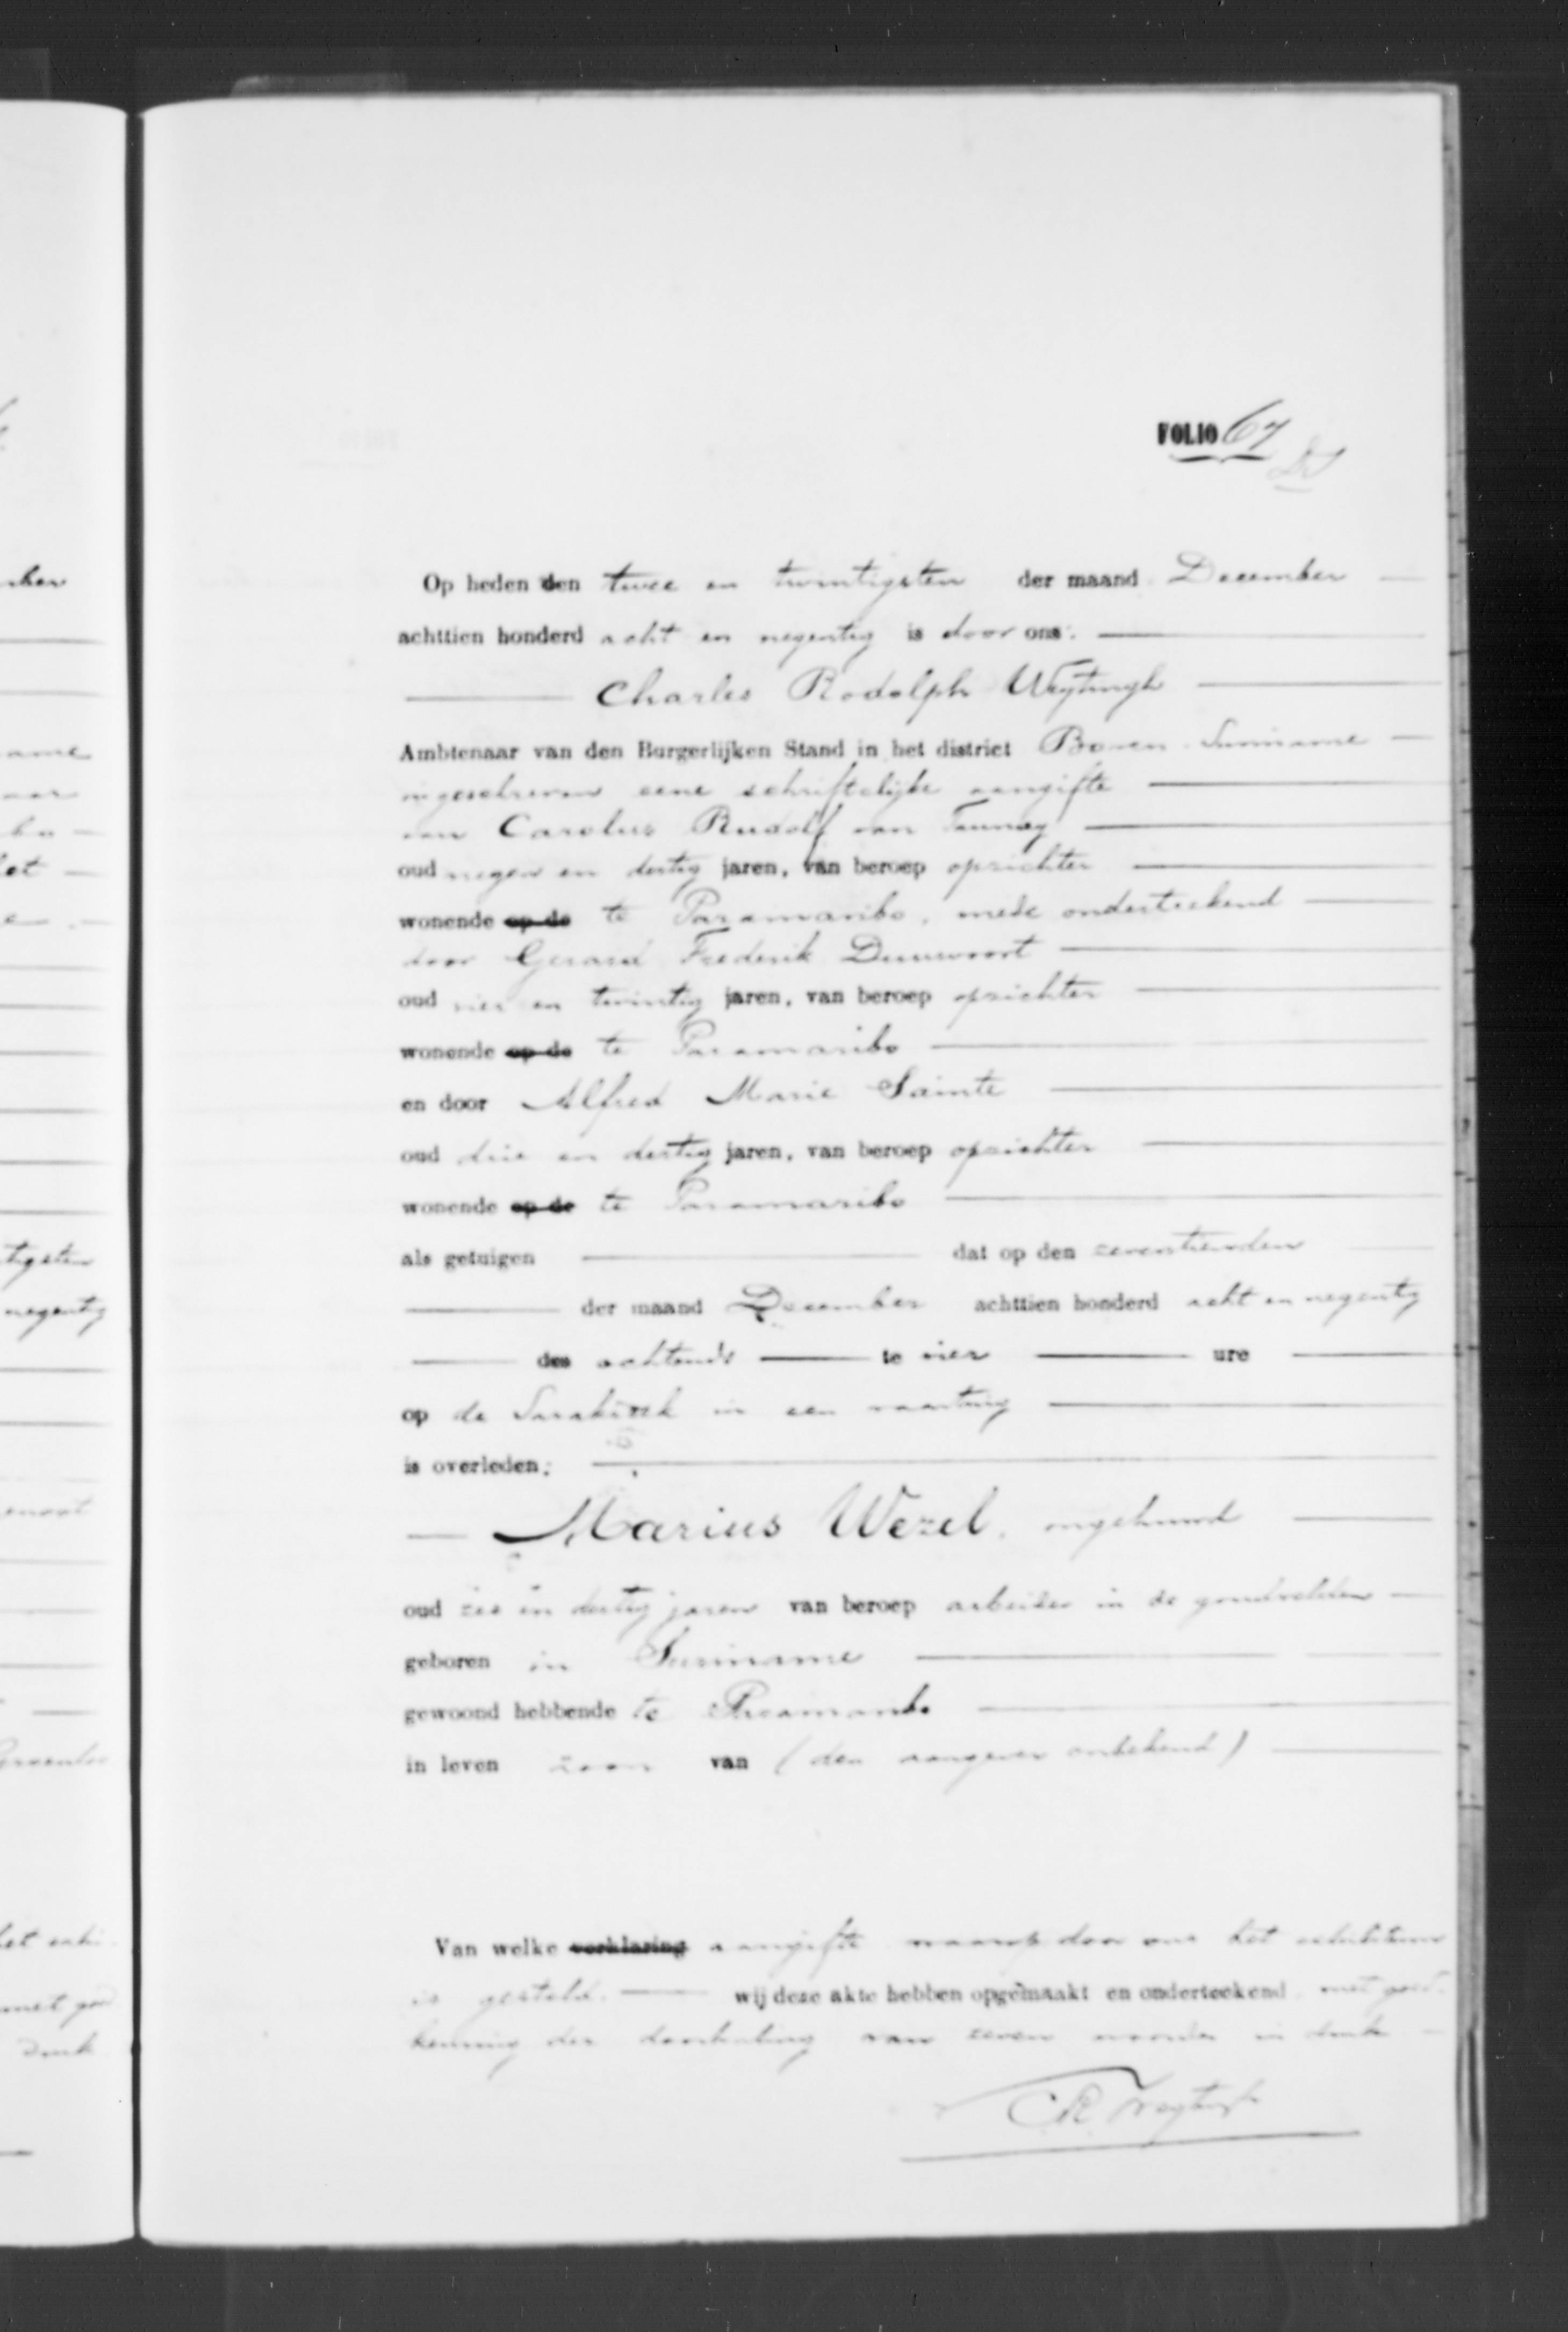 FOLIO 67
Op heden den twee en twintigsten der maand December
achttien honderd acht en negentig is door ons:
Charles Rodolph Weytingh
Ambtenaar van den Burgerlijken Stand in het district Boven Suriname
ingeschreven eene schriftelijke aangifte
van Carolus Rudolf van
oud negen en dertig jaren, van beroep opzichter
wonende op de te Paramaribo, mede onderteekend
door Gerard Frederik
oud vier en twintig jaren, van beroep opzichter
wonende op de te Paramaribo
en door Alfred Marie Sainte
oud drie en dertig jaren, van beroep opzichter
wonende op de te Paramaribo
als getuigen dat op den zeventienden
der maand December achttien honderd acht en negentig
des ochtends te vier ure
op de Sarakreek in een vaartuig
is overleden:
Marius Wezel, ongehuwd
oud zes en dertig jaren van beroep arbeider in de goudvelden
geboren in Suriname
gewoond hebbende te Paramaribo
in leven zoon van (den aangever onbekend)
Van welke verklaring aangifte waarop door ons het
is gesteld. wij deze akte hebben opgemaakt en onderteekend met goed-
keuring der doorhaling van zeven woorden in druk
CR Weytingh